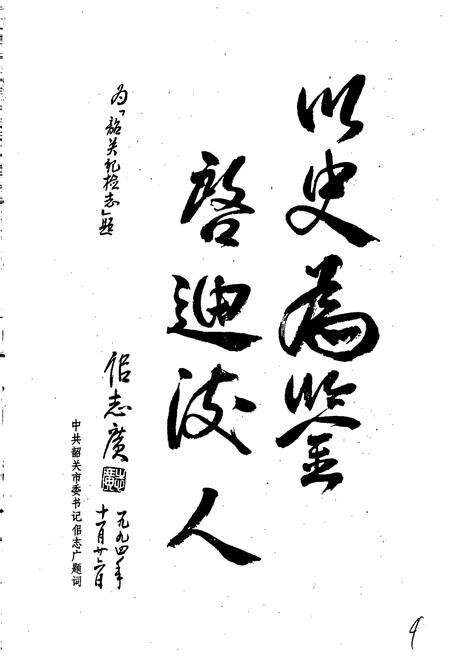 以史為鑒
啓迪後人
为「韶关纪检志」题
佀志廣
一九九四年
十一月廿六日
中共韶关市委书记佀志广题词